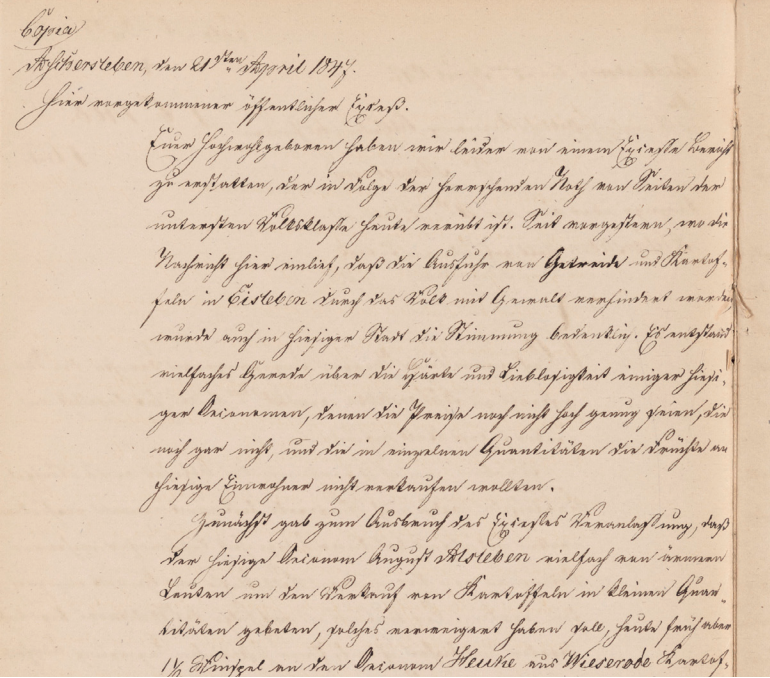 Copia
Aschersleben, den 21sten April 1847.
Hier vorgekommener öffentlicher Exceß.
Euer Hochwohlgeboren haben wir leider von einem Excesse Bericht
zu erstatten, der in Folge der herrschenden Noth von Seiten der
untersten Volksklasse heute verübt ist. Seit vorgestern, wo die
Nachricht hier einlief, daß die Ausfuhr von Getreide und Kartof-
feln in Eisleben durch das Volk mit Gewalt verhindert worden,
wurde auch in hiesiger Stadt die Stimmung bedenklich. Es entstand
vielfaches Gerede über die Härte und Lieblosigkeit einiger hiesi-
ger Oeconomen, denen die Preise noch nicht hoch genug seien, die
noch gar nicht, und die in einzelnen Quantitäten die Früchte an
hiesige Einwohner nicht verkaufen wollten.
Zunächst gab zum Ausbruch des Excesses Veranlassung, daß
der hiesige Oeconom August Alsleben vielfach von ärmern
Leuten um den Verkauf von Kartoffeln in kleinen Quan-
titäten gebeten, solches verweigert haben soll, heute früh aber
1½ Winspel an den Oeconom Heucke aus Wieserode Kartof-